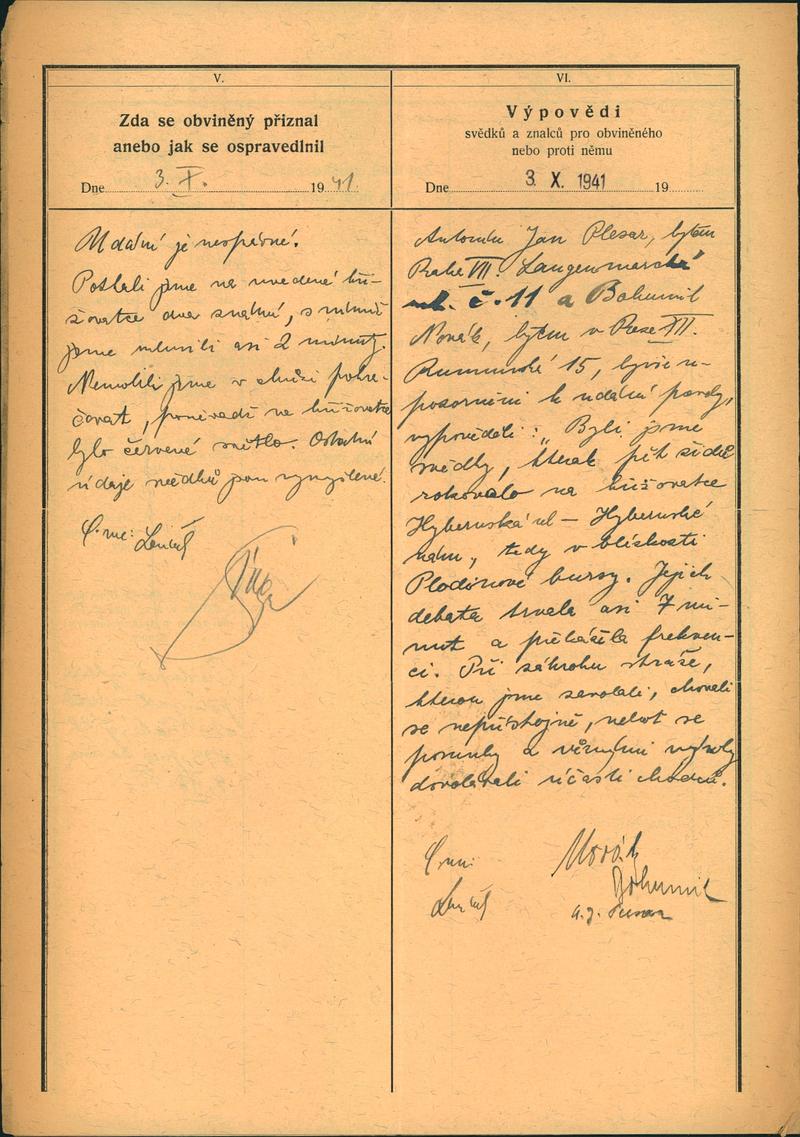 V.
Zda se obviněný přiznal
anebo jak se ospravedlnil
Dne 3. X. 1941
Udání je nesprávné.
Potkali jsme na uvedené kři-
žovatce dva známé, s nimiž
jsme mluvili asi 2 minuty.
Nemohli jsme v chůzi pokra-
čovat, poněvadž na křižovatce
bylo červené světlo. Ostatní
údaje svědků jsou vymyšlené.
VI.
Výpovědi
svědků a znalců pro obviněného
nebo proti němu
Dne 3. X. 1941 19
Antonín Jan Plesar, bytem
Praha VII. Langenmarcká
ul. č. 11 a Bohumil
Novák, bytem v Praze XII.
Rumunská 15, byvše u-
pozorněni k udání pravdy,
vypověděli: „Byli jsme
svědky, kterak pět židů
rokovalo na křižovatce
Hybernská ul – Hybernské
nám., tedy v blízkosti
Plodinové bursy. Jejich
debata trvala asi 7 mi-
nut a překážela frekven-
ci. Při zákroku stráže,
kterou jsme zavolali, chovali
se nepřístojně, neboť se
posuňky a různými výroky
dovolávali účasti chodců.
Novák
Bohumil